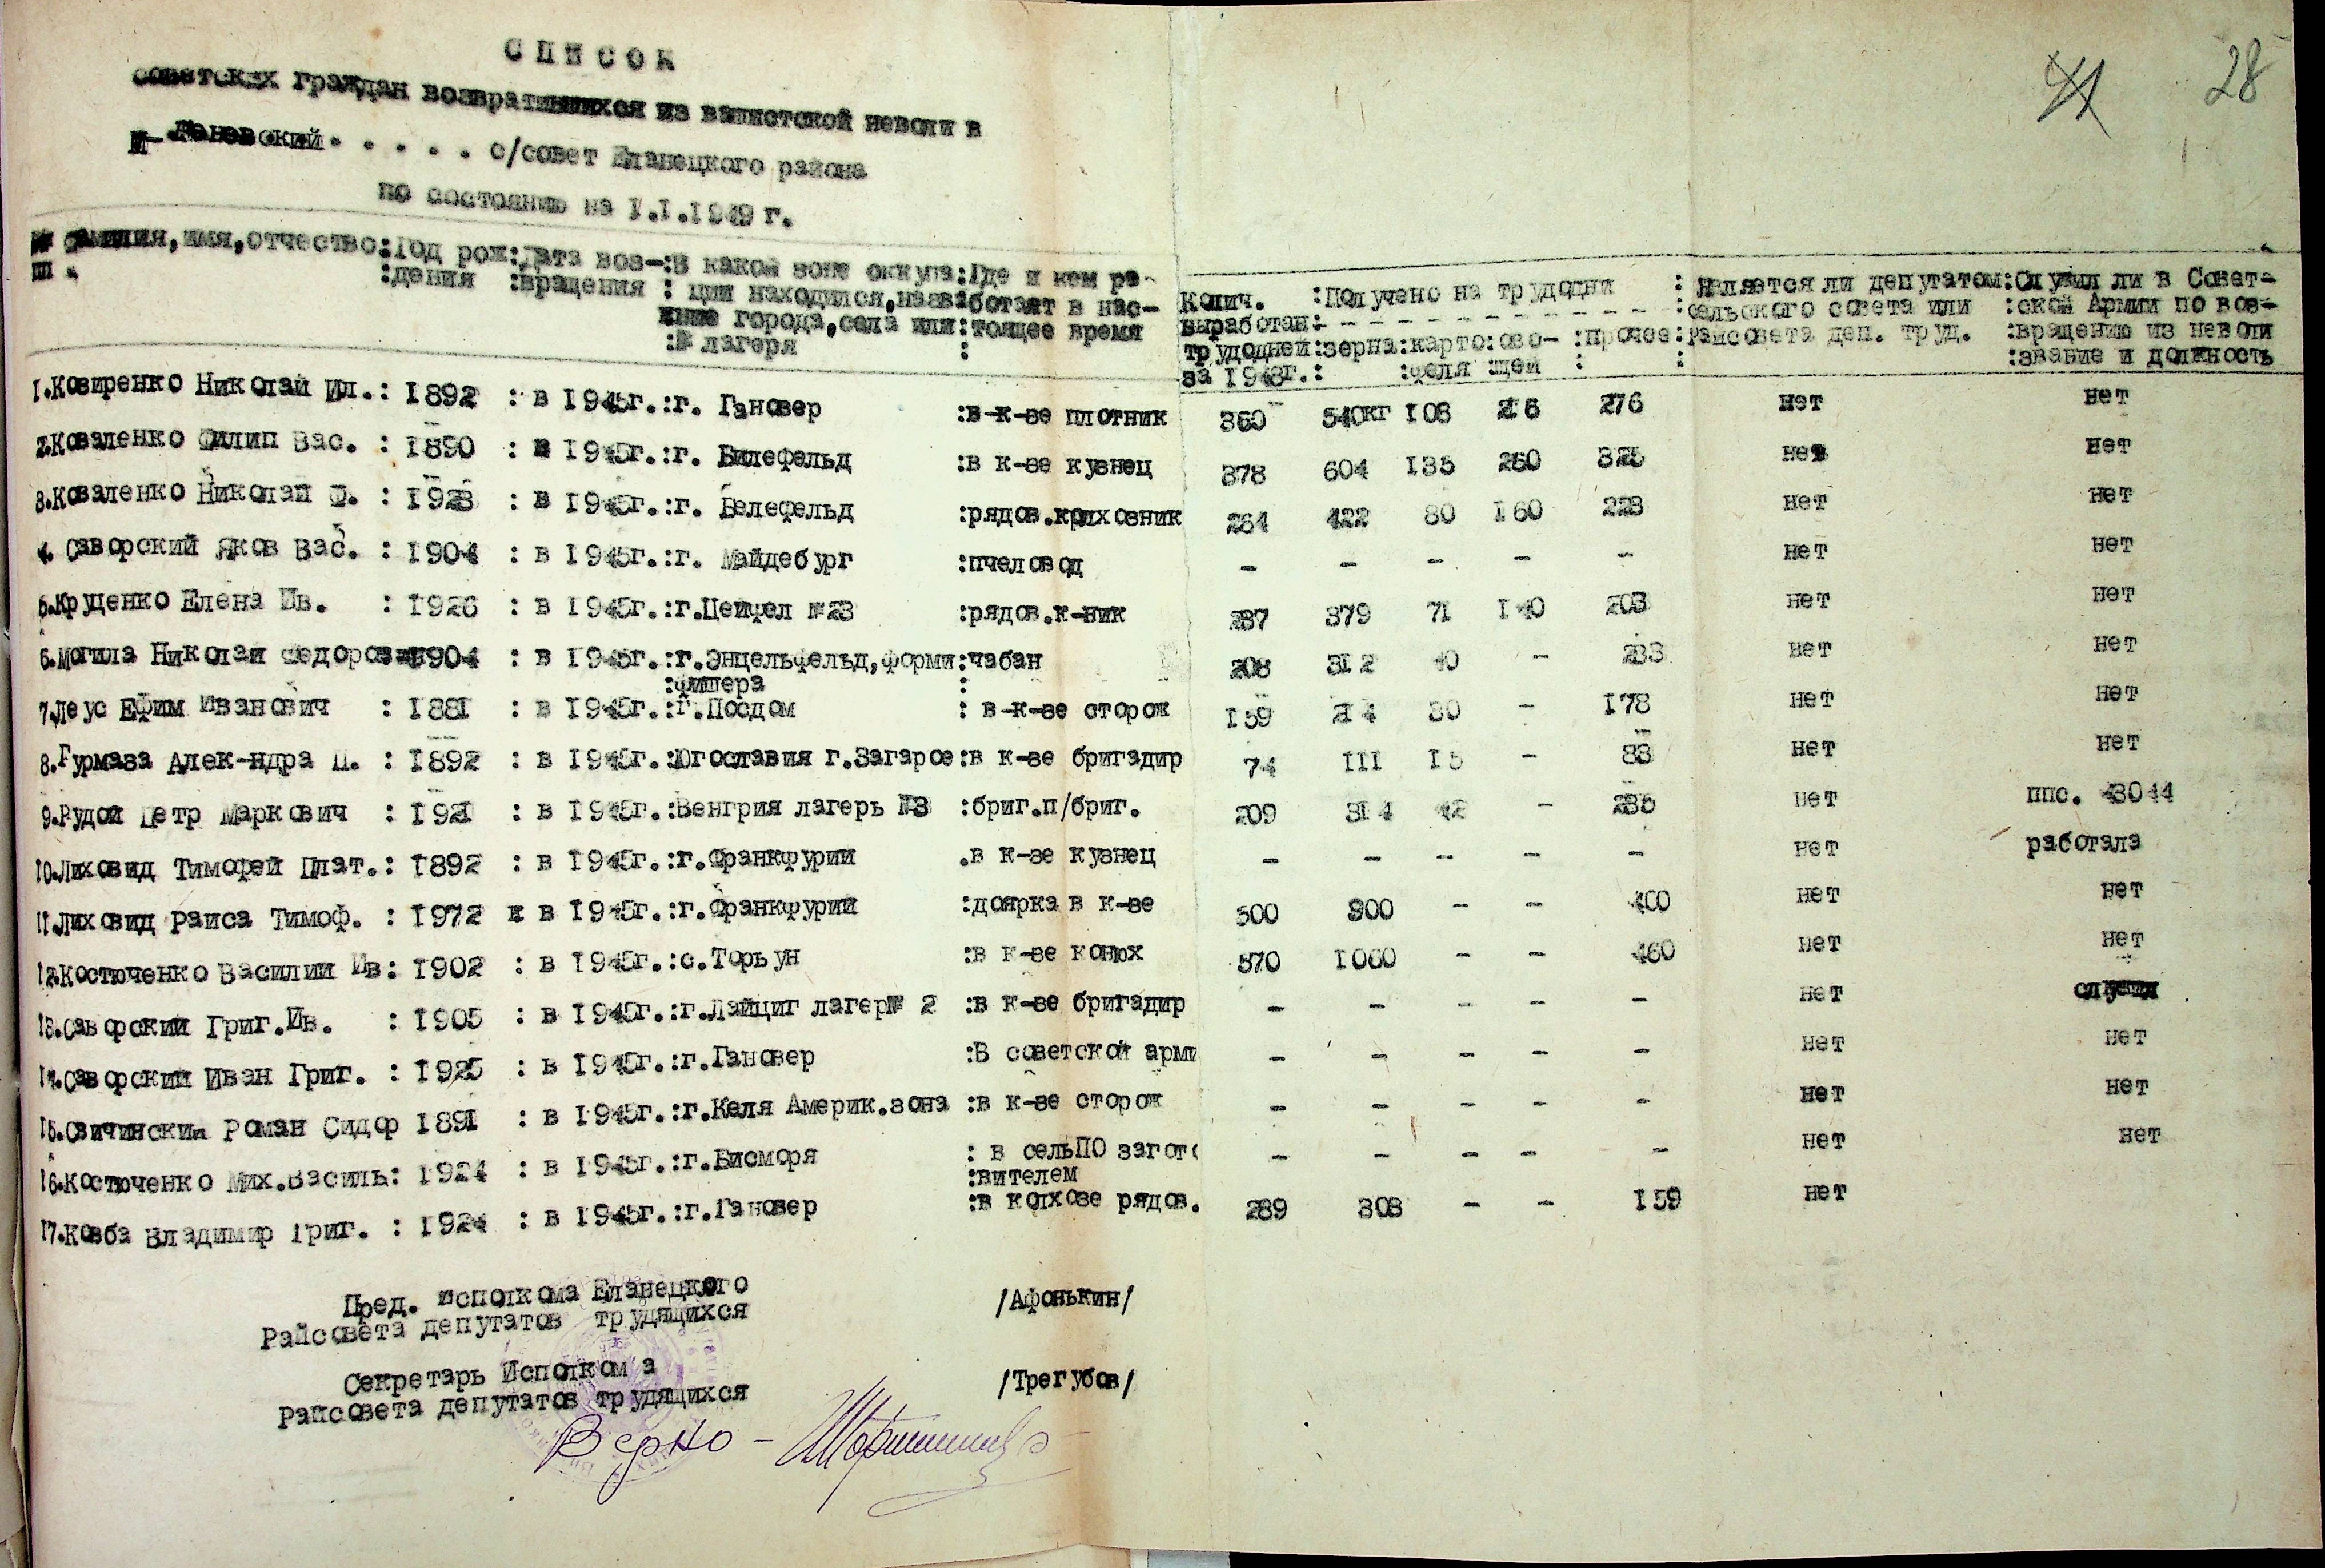 28
СПИСОК
советских граждан возвратившихся из вашистской неволи в
с/совет Еланецкого района
по состоянию на I.I.1949 г.
фамилия,имя,отчество:Год рож:Дата воз-:В какой зоне оккупа:Где и кем ра- Колич. :Получено на трудодни :Является ли депутатом:Служил ли в Совет-
пп. :дения :вращения : ции находился,назва:ботает в нас- выработан:- - - - - - - - - - - - :сельского совета или :ской Армии по воз-
ние города,села или:тоящее время трудодней:зерна:карто:ово- :прочее:Райсовета деп. труд. :вращению из неволи
:№ лагеря : за 1948г.: :феля щей : : :звание и должность
1.Козиренко Николай Ил.: 1892 : в 1945г.:г. Гановер :в-к-зе плотник 360 540кг 108 216 276 нет нет
2.Коваленко Филип Вас. : 1890 : в 1945г.:г. Билефельд :в к-зе кузнец 378 604 135 260 325 нет нет
3.Коваленко Николай Ф. : 1928 : в 1945г.:г. Белефельд :рядов.колхозник 264 422 80 160 228 нет нет
4. Саворский Яков Вас. : 1904 : в 1945г.:г. Майдебург :пчеловод - - - - - нет нет
5.Круценко Елена Ив. : 1926 : в 1945г.:г.Цейфел №23 :рядов.к-ник 237 379 71 140 203 нет нет
6.Могила Николай Федорович 1904 : в 1945г.:г.Энцельфельд,форми:чабан 208 312 40 - 233 нет нет
:Филера :
7.Леус Ефим Иванович : 1881 : в 1945г.:г.Посдом : в-к-зе сторож 159 214 30 - 178 нет нет
8.Гурмаза Алек-ндра П. : 1892 : в 1945г.:Югославия г.Загарое:в к-зе бригадир 74 111 15 - 83 нет нет
9.Рудой Петр Маркович : 1921 : в 1945г.:Венгрия лагерь №3 :бриг.п/бриг. 209 314 42 - 235 нет ппс. 43044
10.Лиховид Тимофей Плат.: 1892 : в 1945г.:г.Франкфурии .в к-зе кузнец - - - - - нет работала
11.Лиховид Раиса Тимоф. : 1972 : в 1945г.:г.Франкфурии :доярка в к-зе 500 900 - - 400 нет нет
12.Костюченко Василий Ив: 1902 : в 1945г.:с.Торьун :в к-зе конюх 570 1060 - - 460 нет нет
13.Саворский Григ.Ив. : 1905 : в 1945г.:г.Лайциг лагер№ 2 :в к-зе бригадир - - - - - нет служил
14.Саворский Иван Григ. : 1925 : в 1945г.:г.Гановер :В советской арми - - - - - нет нет
15.Свичинский Роман Сидор 1891 : в 1945г.:г.Келя Америк.зона :в к-зе сторож - - - - - нет нет
16.Костюченко Мих.Василь: 1924 : в 1945г.:г.Висморя : в сельПО загото - - - - - нет нет
:вителем
17.Ковба Владимир Григ. : 1924 : в 1945г.:г.Гановер :в колхозе рядов. 289 303 - - 159 нет
Пред. исполкома Еланецкого /Афонькин/
Райсовета депутатов трудящихся
Секретарь Исполкома /Трегубов/
Райсовета депутатов трудящихся
Верно -